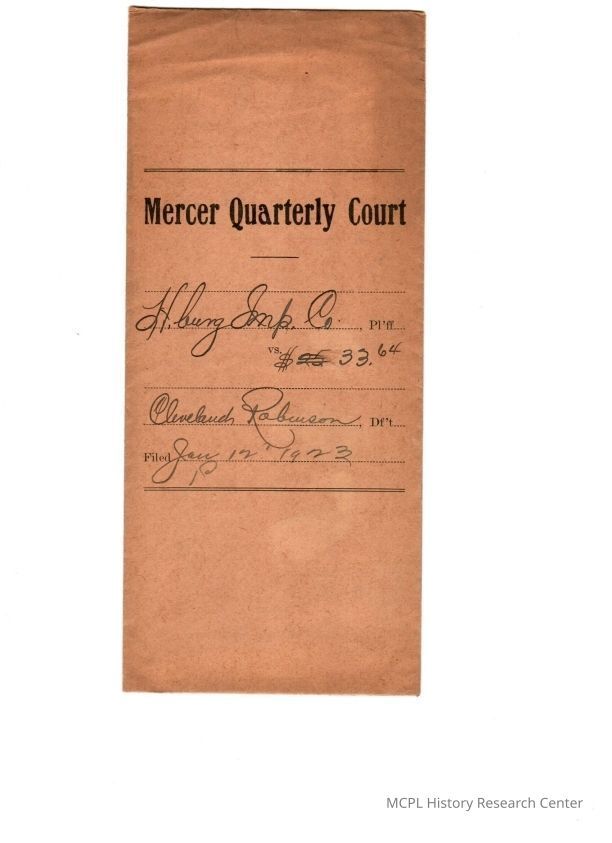 Mercer Quarterly Court
H.burg Imp. Co., Pl'ff.
vs. $ 33.64
Cleveland Robinson, Df't.
Filed Jan 12" 1923
MCPL History Research Center